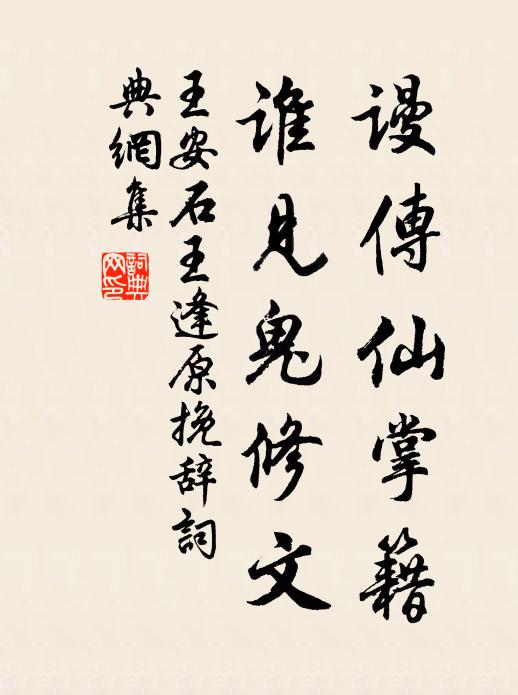 謾傳仙掌籍
誰見鬼修文
王安石王逢原挽辞詞
典網集
詞典网印